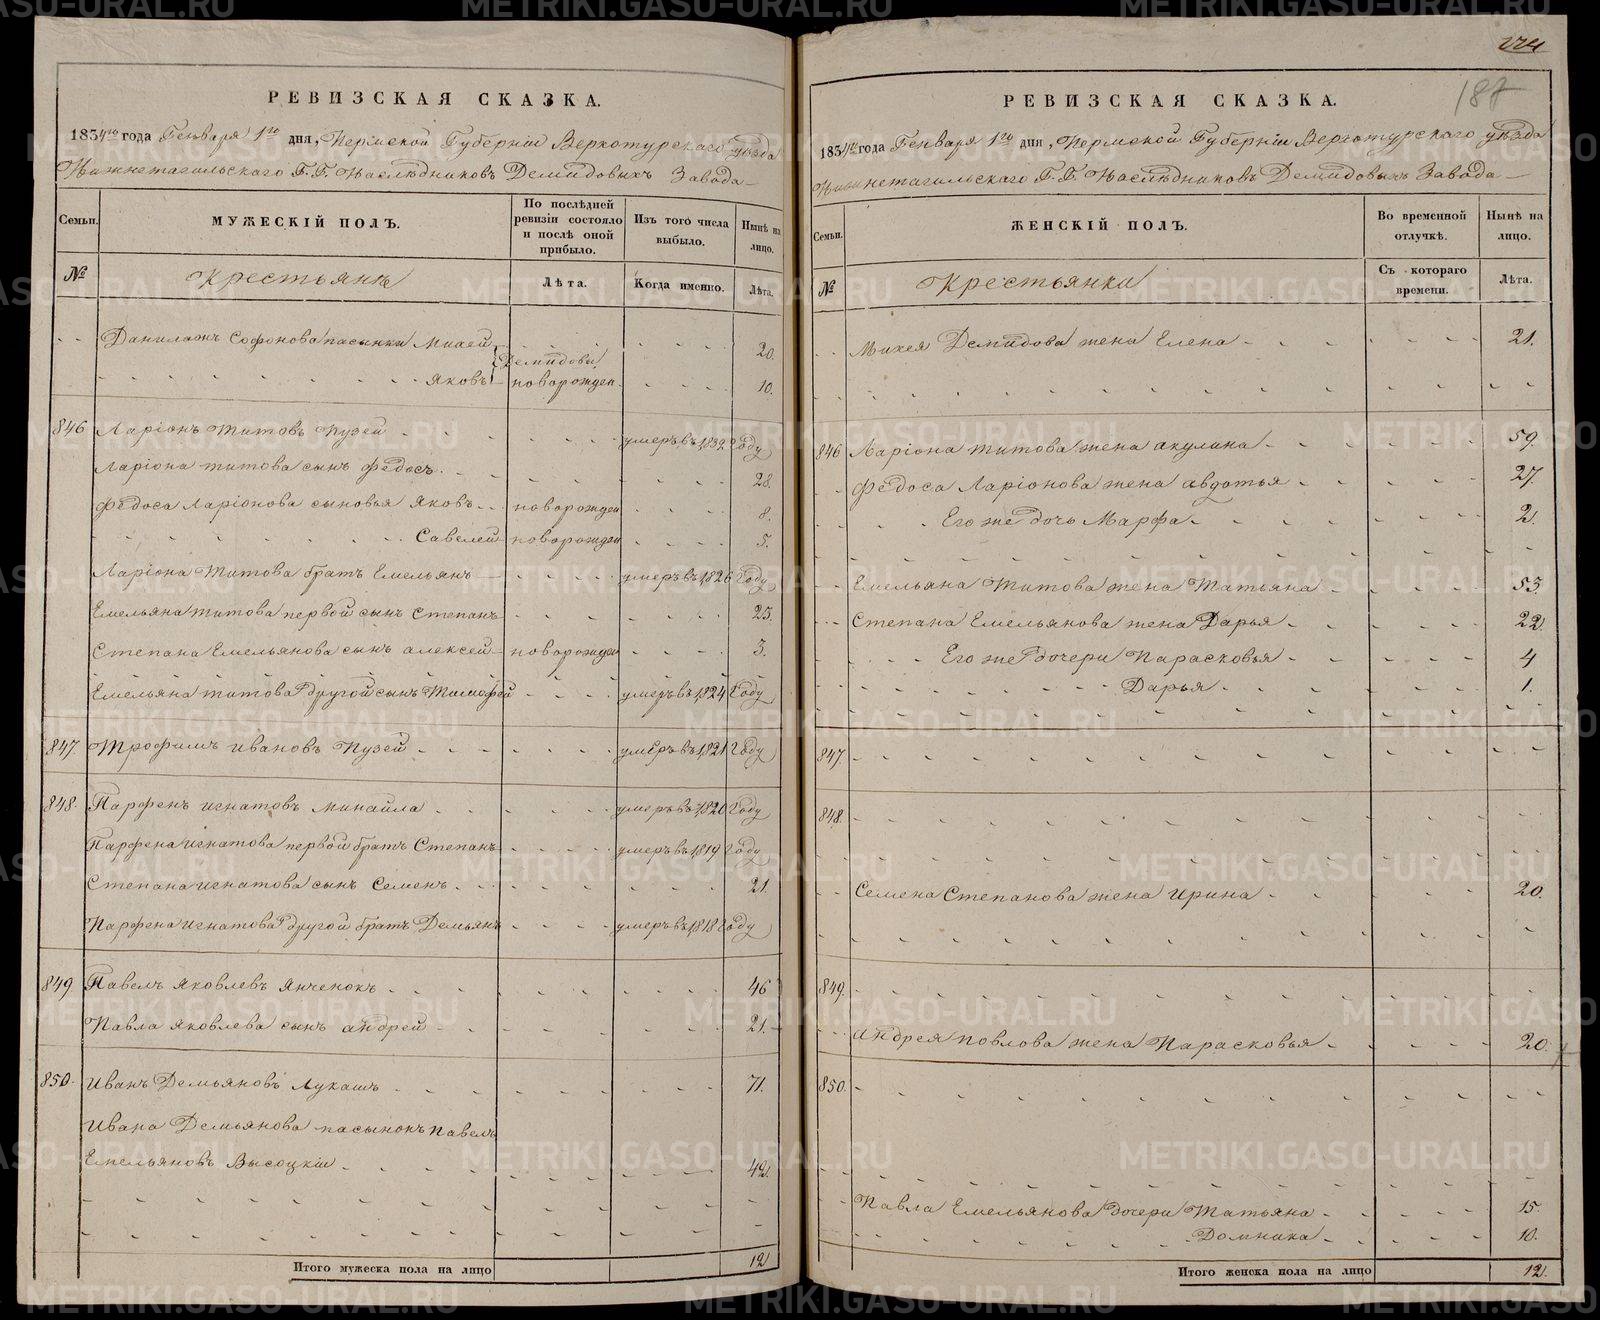 РЕВИЗСКАЯ СКАЗКА.
1834го года Генваря 1го дня, Пермской Губернiи Верхотурскаго уѣзда
Нижнетагильскаго Г.Г. Наслѣдниковъ Демидовыхъ Завода
Семьи. МУЖЕСКIЙ ПОЛЪ. По послѣдней ревизiи состояло и послѣ оной прибыло. Изъ того числа выбыло. Нынѣ на лицо.
№ Крестьяне Лѣта. Когда именно. Лѣта.
Данилаже Софонова пасынки Михей 20.
Демидовы
Яковъ новорожден. 10.
846 Ларiонъ Титовъ Пузей умеръ въ 1832 Году
Ларiона Титова сынъ Федосъ 28.
Федоса Ларiонова сыновья Яковъ новорожден 8.
Савелей новорожден 5.
Ларiона Титова братъ Емельянъ умеръ въ 1826 Году
Емельяна Титова первой сынъ Степанъ 25.
Степана Емельянова сынъ Алексей новорожден 3.
Емельяна Титова другой сынъ Тимофей умеръ въ 1824 Году
847. Трофимъ Ивановъ Пузей умеръ въ 1821 Году
848. Парфенъ Игнатовъ Минайла умеръ въ 1820 Году
Парфена Игнатова первой братъ Степанъ умеръ въ 1819 Году
Степана Игнатова сынъ Семенъ 21.
Парфена Игнатова другой братъ Демьянъ умеръ въ 1818 Году
849. Павелъ Яковлевъ Янченокъ 46
Павла Яковлева сынъ Андрей 21.
850. Иванъ Демьяновъ Лукашъ 71.
Ивана Демьянова пасынокъ Павелъ
Емельяновъ Высоцкiй 42.
Итого мужеска пола на лицо 12
224
187
РЕВИЗСКАЯ СКАЗКА.
1834го года Генваря 1го дня, Пермской Губернiи Верхотурскаго уѣзда
Нижнетагильскаго Г.Г. Наслѣдниковъ Демидовыхъ Завода
Семьи. ЖЕНСКIЙ ПОЛЪ. Во временной отлучкѣ. Нынѣ на лицо.
№ Крестьянки Съ котораго времени. Лѣта.
Михея Демидова жена Елена 21.
846 Ларiона Титова жена Акулина 59.
Федоса Ларiонова жена Авдотья 27.
Его же дочь Марфа 2.
Емельяна Титова жена Татьяна 53.
Степана Емельянова жена Дарья 22.
Его же дочери Парасковья 4
Дарья 1.
847.
848.
Семена Степанова жена Ирина 20.
849.
Андрея Повлова жена Парасковья 20.
850.
Павла Емельянова дочери Татьяна 15.
Домника 10.
Итого женска пола на лицо 12.
METRIKI.GASO-URAL.RU